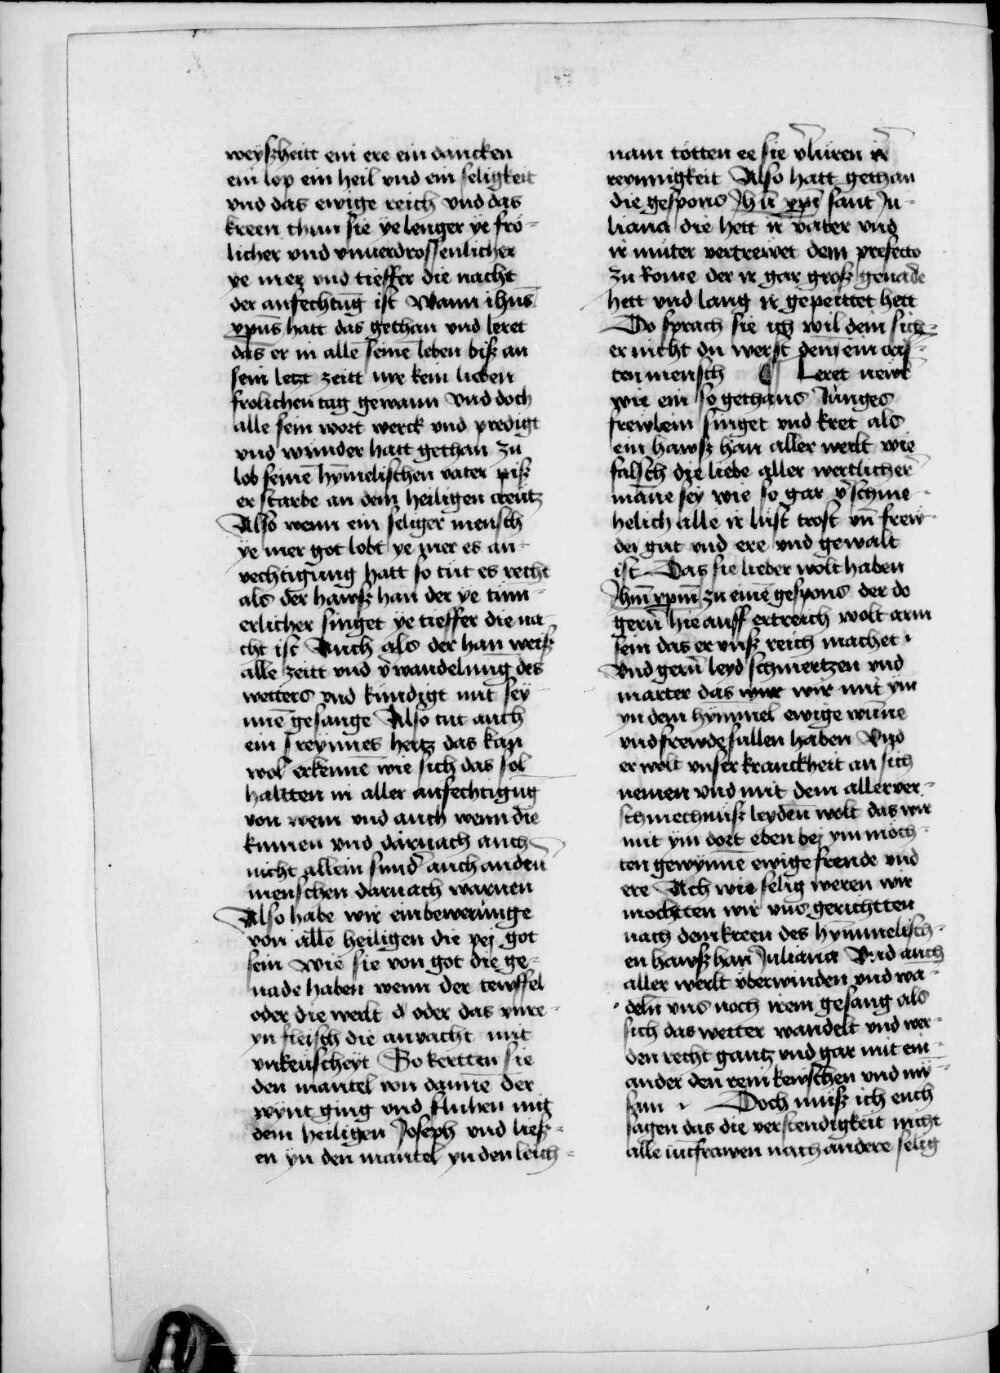 weyßheitt ein ere ein dancken
ein lop ein heil vnd ein seligkeit
vnd das ewige reich vnd das
kreen thun sie ye lenger ye fro-
licher vnd vnuerdrossenlicher
ye mer vnd tieffer die nacht
der anfechtūg ist Wann ihūs
xpūs hatt das gethan vnd leret
das er in allē seinē leben biß an
sein letzt zeitt nye kein lieben
frolichen tag gewann vnd doch
alle sein wort werck vnd predigt
vnd wunder hatt gethan zu
lob seinē hȳmelischen vater piß
er starbe an dem heiligen creutz
Also wenn ein seliger mensch
ye mer got lobt ye mer es an-
vechtigung hatt so tut es recht
als der hawß han der ye tim-
erlicher singet ye tieffer die na
cht ist Auch als der han weiß
alle zeitt vnd v̄wandelung des
wetters vnd kundigt mit sey
nnē gesange Also tut auch
ein reynnes hertz das kan
wol erkennē wie sich das sol
haltten in aller anfechtigūg
von wem vnd auch wenn die
kumen vnd darnach auch
nicht allein sund̄ auch anderū
menschen darnach warnen
Also habe wir ein bewerunge
von allē heiligen die pej got
sein wie sie von got die ge-
nade haben wenn der tewffel
oder die werlt d̄ oder das ynre-
yn fleisch die anvacht mit
vnkeuscheyt So kertten sie
den mantel von danne der
wynt ging vnd fluhen mit
dem heiligen Joseph vnd ließ-
en yn den mantel yn den leich-
nam totten ee sie v̄luren ir̄
reynnigkeit Also hatt gethan
die gespons Jhū xpī sant Ju-
liana die hett ir vater vnd
ir muter vertrewet dem prefecto
zu Rome der ir gar groß genade
hett vnd lang ir gepeittet hett
Do sprach sie ich wil dein sich-
er nicht du werst denn ein cris-
ten mensch ¶ Leret new
wie ein so gethans Junges
frewlein singet vnd kret als
ein hawß han aller werlt wie
falsch die liebe aller werltlicher
māne sey wie so gar v̄schme-
helich alle ir lust trost vn̄ frew-
de gut vnd ere vnd gewalt
ist Das sie lieber wolt haben
Jhm̄ xpm̄ zu einē gespons der do
gerū hie auff ertreich wolt arm
sein das er vnß reich machet
vnd gerū leyd schmertzen vnd
marter das wir mit ym
yn dem hymmel ewige wūne
vnd frewde sullen haben Vnd
er wolt vnser kranckheit an sich
nemen vnd mit dem allerver-
schmechnuß leydeū wolt das wir
mit ym dort eben bej ym moch-
ten gewynnē ewige freude vnd
ere Ach wie selig weren wir
mochtten wir vns gerichtten
nach dem kreen des hymmelisch-
en hawß han Juliana Vnd auch
aller werlt vberwinden vnd wa-
delū vns noch irem gesang als
sich das wetter wandelt vnd wer-
den recht gantz vnd gar mit ein-
ander den rein kewschen vnd my
sam Doch muß ich euch
sagen das die verstendigkeit nicht
alle iūcfrawen nach andere selig